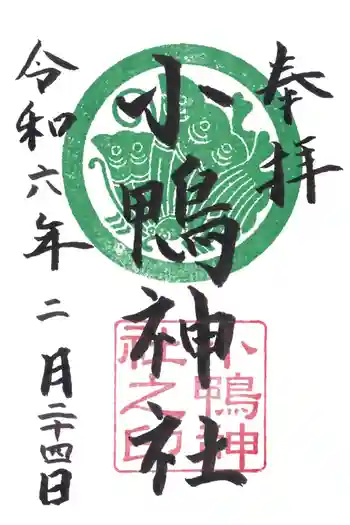 奉拝
小鴨神社
小鴨神
社之印
令和六年
二月二十四日